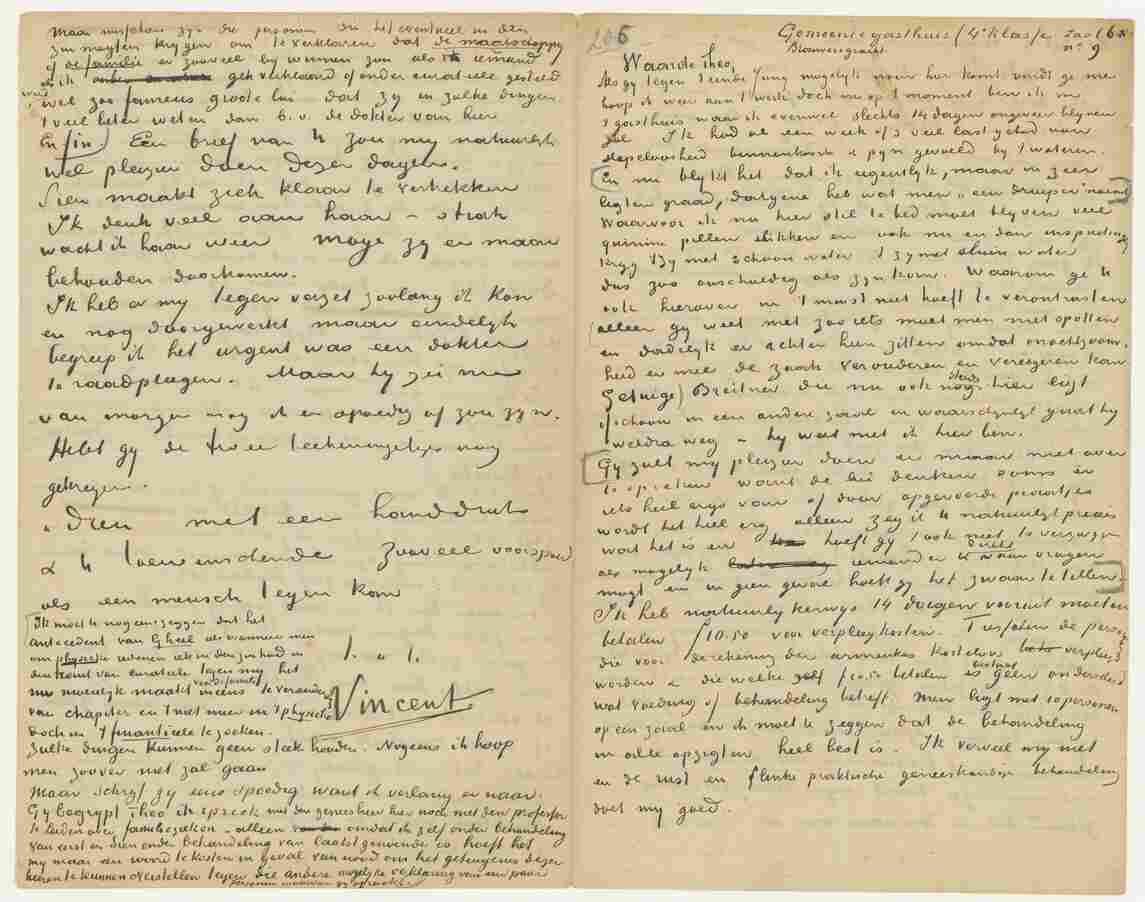 Maar misschien zyn die personen die het eventueel in den
zin mogten krygen om te verklaren dat de maatschappy
of de familie er zooveel by winnen zou als iemand
als ik gek verklaard of onder curateele gesteld
werd wel zoo fameus groote lui dat zy in zulke dingen
't veel beter weten dan b.v. de dokter van hier
Enfin) Een brief van U zou my natuurlyk
wel pleizier doen dezer dagen.
Sien maakt zich klaar te vertrekken
Ik denk veel aan haar –
wacht ik haar weer moge zy er maar
behouden doorkomen.
Ik heb er my tegen verzet zoolang ik kon
en nog doorgewerkt maar eindelyk
begreep ik het urgent was een dokter
te raadplegen. Maar hy zei me
van morgen nog ik er spoedig af zou zyn.
Hebt gy de twee teekeningetjes nog
gekregen.
adieu met een handdruk
& U toewenschende zooveel voorspoed
als een mensch tegen kan
t. à. t.
Vincent
Ik moet U nog eens zeggen dat het
antecedent van Gheel als wanneer men
om physieke redenen iets in den zin had in
den trant van curateele tegen my het
nu moeielyk maakt ineens te veranderen
van chapiter en 't niet meer in 't physieke
doch in 't finantieele te zoeken.
Zulke dingen kunnen geen steek houden. Nogeens ik hoop
men zoover niet zal gaan
Maar schryf gy eens spoedig want ik verlang er naar.
Gy begrypt Theo ik spreek met den geneesheer hier noch met den professor
te leiden over familiezaken – alleen omdat ik zelf onder behandeling
van eerst en Sien onder behandeling van laatstgenoemde is hoeft het
my maar een woord te kosten in geval van nood om het getuigenis dezer
heeren te kunnen overstellen tegen die andere mogelyke verklaring van een paar
personen waarvan gy spraakt.
206
Gemeente gasthuis (4e klasse zaal 6
Brouwersgracht no 9
Waarde Theo,
Als gy tegen 't einde Juny mogelyk naar hier komt vindt ge me
hoop ik weer aan 't werk doch nu op 't moment ben ik in
't gasthuis waar ik evenwel slechts 14 dagen ongeveer blyven
zal. Ik had al een week of 3 veel last gehad van
slapeloosheid binnenkoorts & pyn gevoeld by 't wateren.
En nu blykt het dat ik eigentlyk, maar in zeer
ligten graad, datgene heb wat men „een druiper" noemt
Waarvoor ik nu hier stil te bed moet blyven veel
quinine pillen slikken en ook nu en dan inspuitingen
kryg 't zy met schoon water 't zy met aluin water
dus zoo onschuldig als zyn kan. Waarom ge U
ook hierover in 't minst niet hoeft te verontrusten
alleen gy weet met zoo iets moet men niet spotten
en dadelyk er achter heen zitten omdat onachtzaam-
heid er mee de zaak verouderen en verergeren kan
Getuige) Breitner die nu ook nog steeds hier ligt
ofschoon in een andere zaal en waarschynlyk gaat hy
weldra weg – hy weet niet ik hier ben.
Gy zult my pleizier doen er maar niet over
te spreken want de lui denken soms er
iets heel ergs van of door opgevoerde praatjes
wordt het heel erg alleen zeg ik U natuurlyk precies
wat het is en hoeft gy 't ook niet te verzwygen
als mogelyk iemand er U direkt naar vragen
mogt en in geen geval hoeft gy het zwaar te tellen.
Ik heb natuurlykerwys 14 dagen vooruit moeten
betalen f 10.50 voor verpleegkosten. Tusschen de personen
die voor rekening der armenkas kosteloos verpleegd
worden & die welke zelf f 10.50 betalen bestaat geen onderscheid
wat voeding of behandeling betreft. Men ligt met 10 personen
op een zaal en ik moet U zeggen dat de behandeling
in alle opzigten heel best is. Ik verveel my niet
en de rust en flinke praktische geneeskundige behandeling
doet my goed.